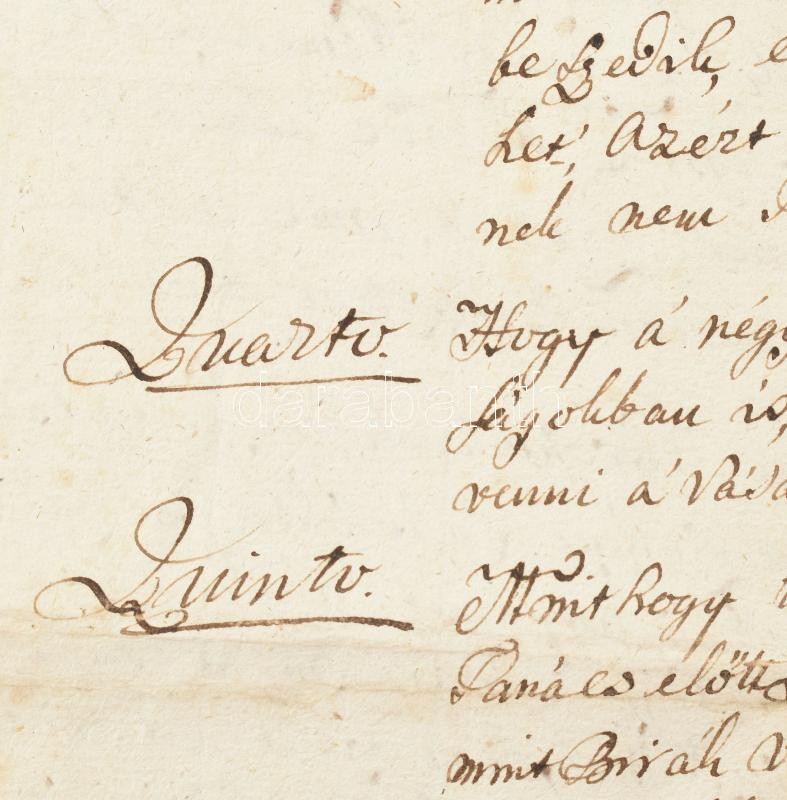 be szedik,
het, Azért
nek nem
Quarto. Hogy á négy
ságokban is,
venni á Vása
Quinto. Mint hogy
Tanács előtt
mint Birák V
darabanth